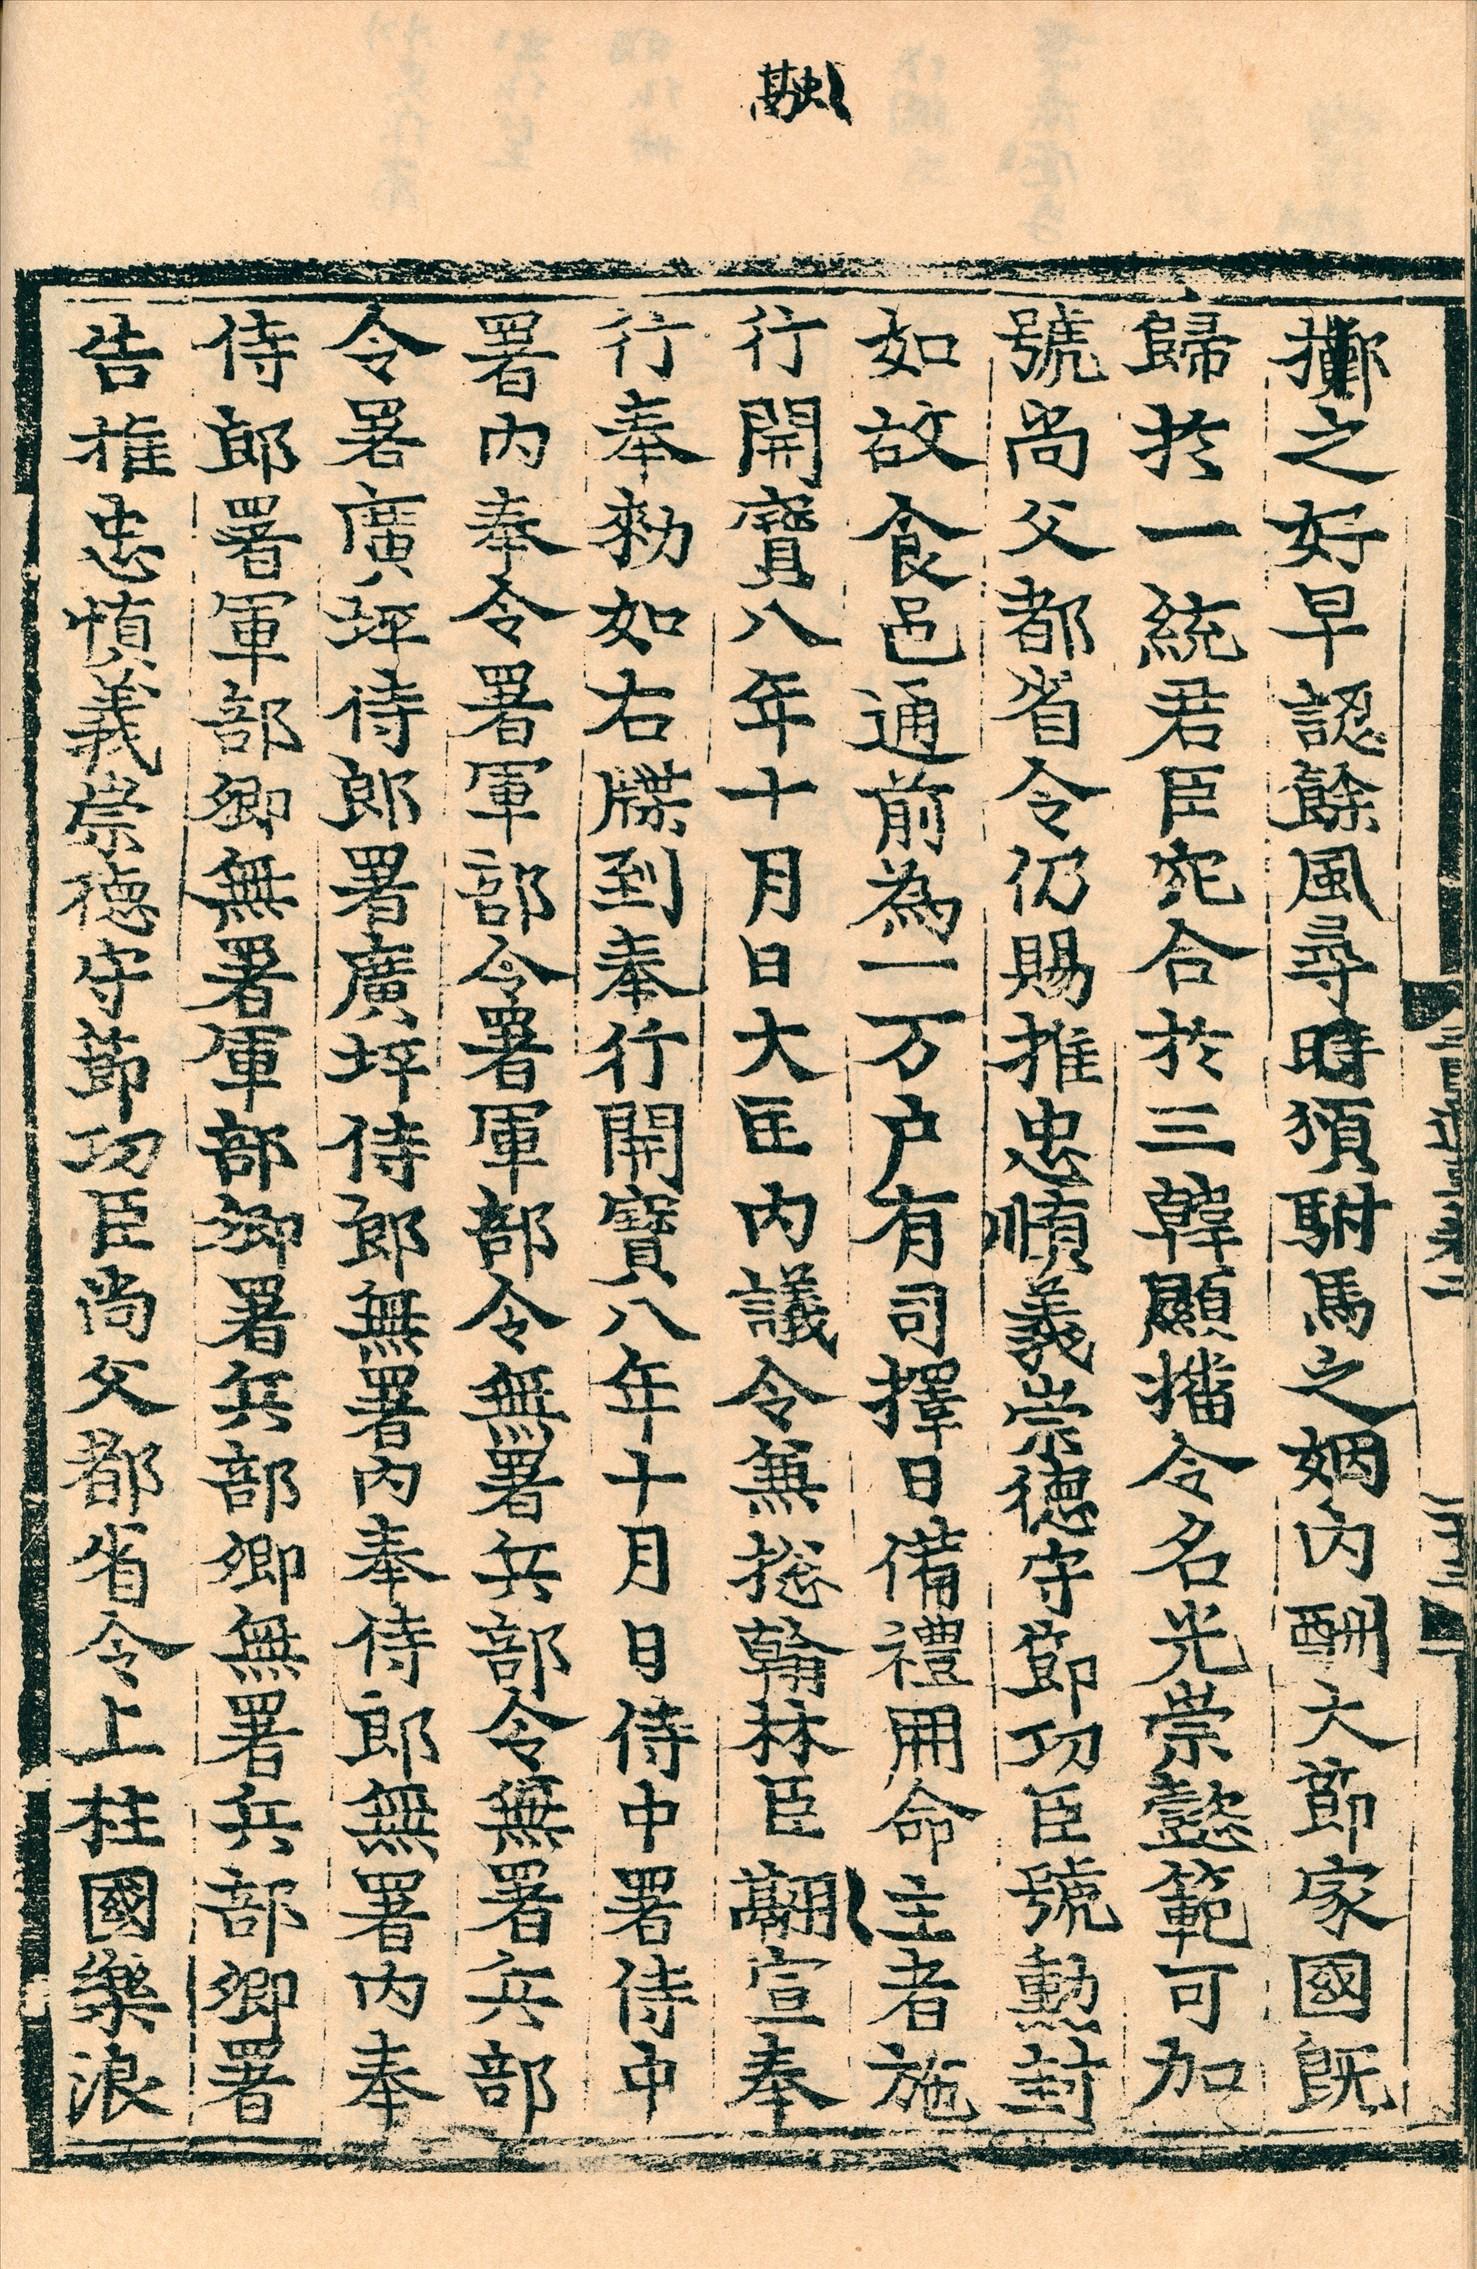 擲之好早認餘風尋時頒駙馬之姻内酬大節家國旣
歸於一統君臣宛合於三韓顯播令名光崇懿範可加
號尚父都省令仍賜推忠愼義崇德守節功臣號勳封
如故食邑通前爲一万户有司擇日備禮冊命主者施
行開寶八年十月日大匡内議令兼摠翰林臣翮宣奉
行奉勑如右牒到奉行開寶八年十月日侍中署侍中
署内奉令署軍部令署軍部令無署兵部令無署兵部
令署廣坪侍郎署廣坪侍郎無署内奉侍郎無署内奉
侍郎署軍部卿無署軍部卿署兵部卿無署兵部卿署
告推忠愼義崇德守節功臣尚父都省令上柱國樂浪